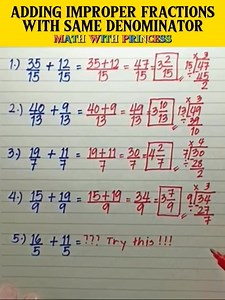 ADDING IMPROPER FRACTIONS
WITH SAME DENOMINATOR
MATH WITH PRINCESS
1.) 35/15 + 12/15 = 35+12/15 = 47/15 = 3 2/15
3
15√47
- 45
2
2.) 40/13 + 9/13 = 40+9/13 = 49/13 = 3 10/13
x 3
13√49
- 39
10
3.) 19/7 + 11/7 = 19+11/7 = 30/7 = 4 2/7
x 4
7√30
- 28
2
4.) 15/9 + 19/9 = 15+19/9 = 34/9 = 3 7/9
x 3
9√34
- 27
7
5.) 16/5 + 11/5 = ??? Try this!!!